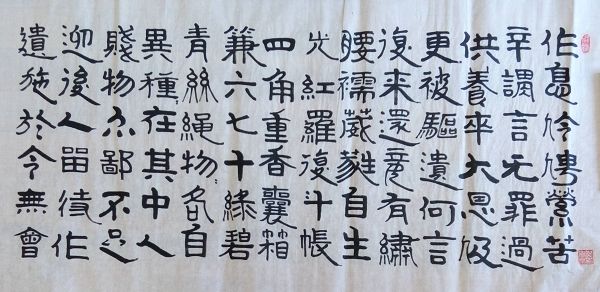 作息伶俜縈苦
辛謂言无罪過
供養卒大恩仍
更被驅遣何言
復来還妾有繡
腰襦葳蕤自生
光紅羅復斗帳
四角垂香囊箱
簾六七十緑碧
青絲繩物〻各自
異種〻在其中人
賤物亦鄙不足
迎後人留待作
遺施於今無會